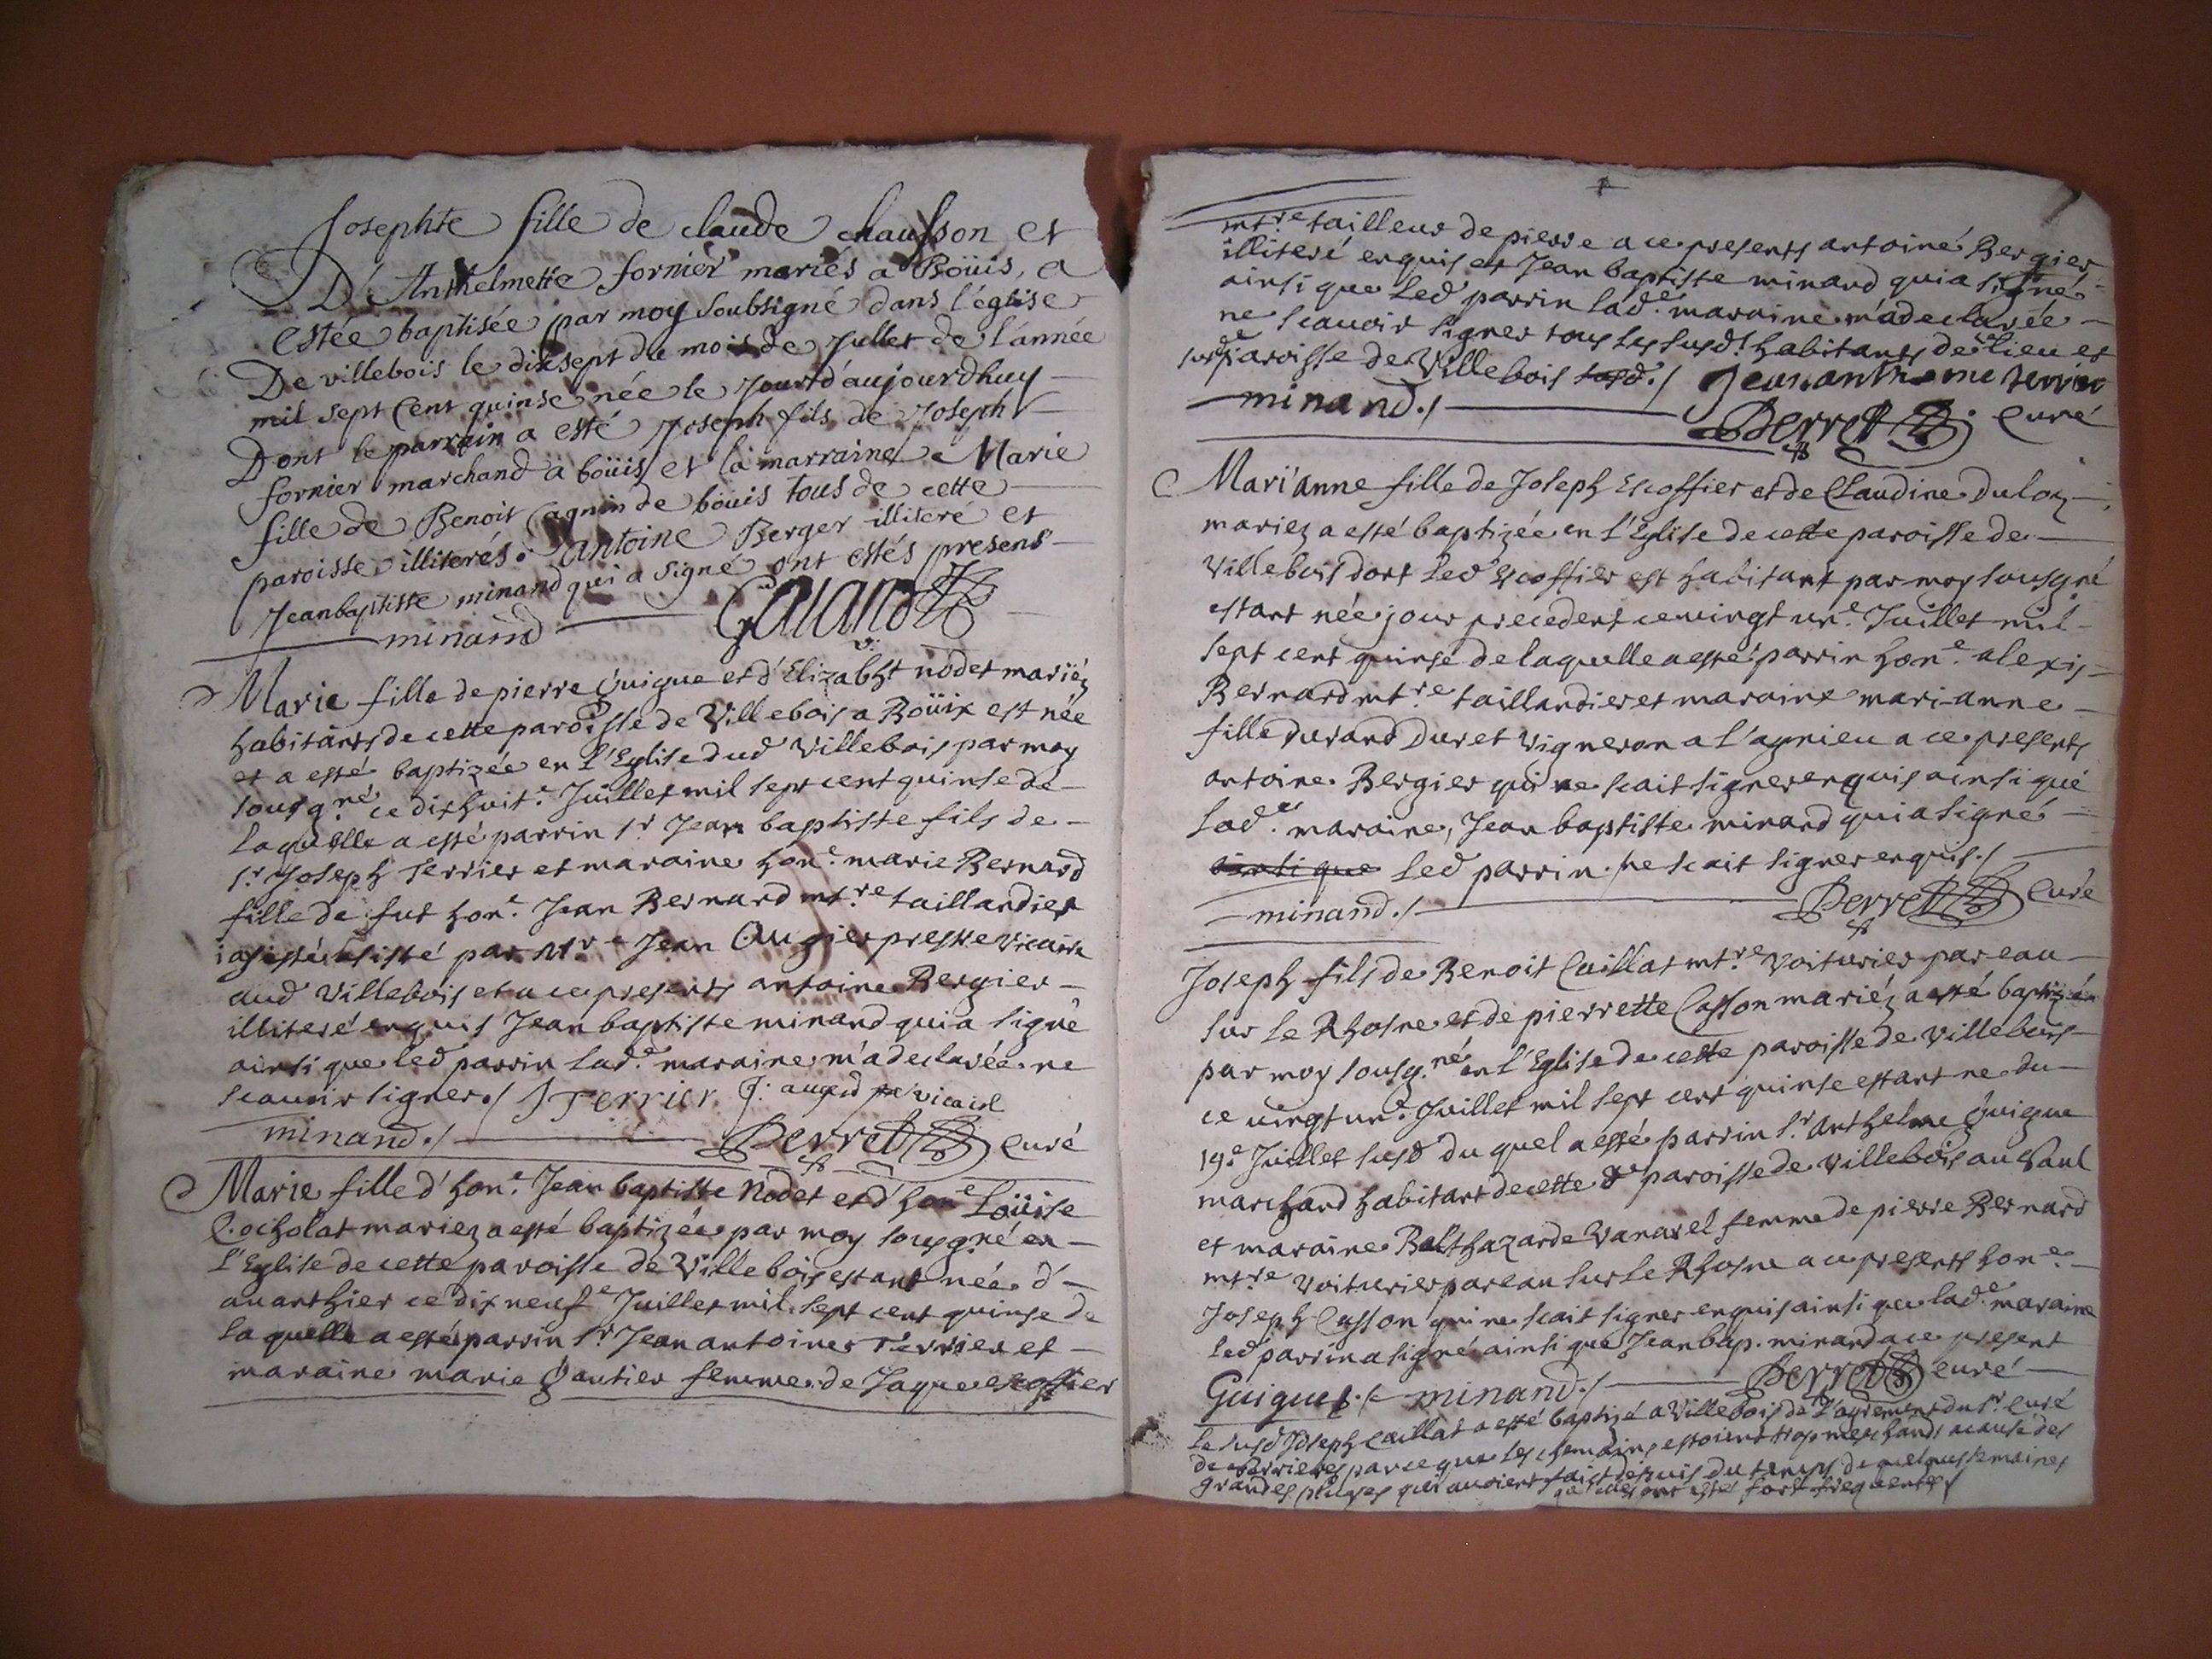 Josephte fille de claude chausson et
D'Anthelmette fornier mariés a Boüis, a
Estée baptisée par moy soubsigné dans l'église
De villebois le dixsept du mois de Jullet de l'année
mil sept Cent quinse née le Jourd'aujourdhuy
Dont le parrain a esté Joseph fils de Joseph
fornier marchand a boüis et la marraine Marie
fille de Benoit Cagnin de boüis tous de cette
paroisse illiterés. Antoine Berger illiteré et
Jeanbaptiste minand qui a signé ont estés presens
minand
Marie fille de pierre Guigue et d'Elizabht nodet mariéz
habitants de cette paroisse de Villebois a Boüix est née
et a esté baptizée en l'Eglise dud Villebois par moy
sousg.né ce dix huit.e Juillet mil sept cent quinse de
laquelle a esté parrin sr Jean baptiste fils de
sr Joseph Terrier et maraine hon.e marie Bernard
fille de fut hon.e Jean Bernard mt.re taillandier
par Mr Jean Augier prestre vicaire
aud Villebois et a ce presents antoine Bergier
illiteré enquis Jean baptiste minand qui a signé
ainsi que led parrin lad.e maraine m'a declarée ne
scauoir signer ./ J Terrier J: augid vicaire
minand ./ Perret curé
Marie fille d'hon.e Jean baptiste Nodet et d'hon.e Loüise
Cocholat mariez a esté baptizée par moy sousg.né en
l'Eglise de cette paroisse de Villebois estant née d'
auanthier ce dix neuf.e Juillet mil sept cent quinse de
laquelle a esté parrin sr. Jean antoine Terrier et
maraine marie Gautier femme de Jaque escoffier
mt.re tailleur de pierre a ce presents antoine Bergier
illiteré enquis et Jean baptiste minand qui a signé
ainsi que led parrin lad.e maraine m'a declarée
ne scauoir signer tous les susd.s habitants de ce lieu et
susd.e paroisse de Villebois susd. ./ Jean anthoine terrier
minand ./ Perret Curé
Mari'anne fille de Joseph Escoffier et de Claudine duloz
mariez a esté baptizée en l'Eglise de cette paroisse de
Villebois dont led Escoffier est habitant par moy sousg.né
estant née jour precedent ce vingt un.e Juillet mil
sept cent quinse de laquelle a esté parrin hon.e alexis
Bernard mt.re taillandier et maraine mari-anne
fille durand Duret vigneron a l'agnieu a ce presents
antoine Bergier qui ne scait signer enquis ainsi que
lad.e maraine, Jean baptiste minand qui a signé
ainsi que led parrin ne scait signer enquis ./
minand ./ Perret Curé
Joseph fils de Benoit Caillat mt.re voiturier par eau
sur le Rhosne et de pierrette Casson mariéz a esté baptizé
par moy sousg.né en l'Eglise de cette paroisse de villebois
ce vingt un.e Juillet mil sept cent quinse estant ne du
19.e Juillet susd du quel a esté parrin sr. Anthelme Guigue
marchand habitant de cette paroisse de Villebois au Saul
et maraine Balthazarde Vanarel femme de pierre Bernard
mt.re voiturier par eau sur le Rhosne a ce presents hon.e
Joseph Casson qui ne scait signer enquis ainsi que lad.e maraine
led parrin a signé ainsi que Jean bap. minand a ce present
Guigues ./. minand ./ Perret curé
Le susd Joseph Caillat a esté baptizé a Villebois de l'agrement du sr. curé
de parce que les chemains estoient trop meschants a cause des
grandes pluyes qui auoient fait depuis du temps de quelques semaines
qu'elles ont esté fort frequentes